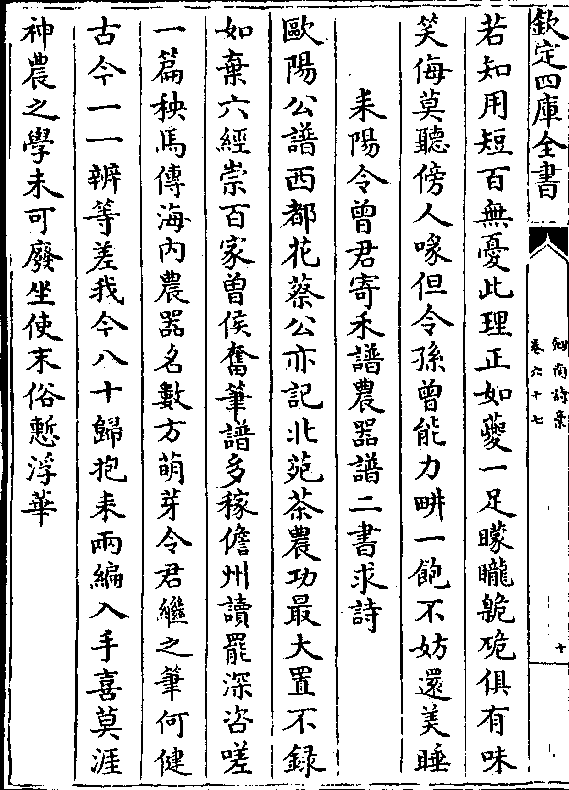 欽定四庫全書
劔南詩槀
卷六十七
十
若知用短百無憂此理正如夔一足矇矓臲硊俱有味
笑侮莫聽傍人喙但令孫曾能力畊一飽不妨還美睡
耒陽令曾君寄禾譜農器譜二書求詩
歐陽公譜西都花蔡公亦記北苑茶農功最大置不録
如棄六經崇百家曽侯奮筆譜多稼儋州讀罷深咨嗟
一篇秧馬傳海內農器名數方萌芽令君繼之筆何健
古今一一辨等差我今八十歸抱耒兩編入手喜莫涯
神農之學未可廢坐使末俗慙浮華